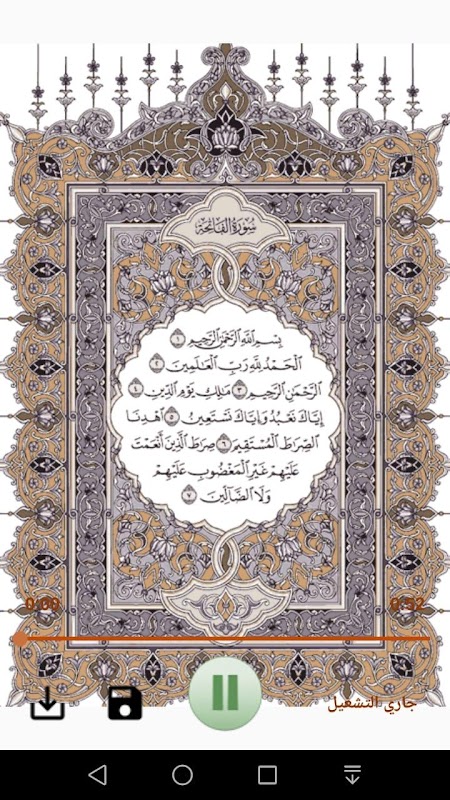 سُورَةُ الفَاتِحَةِ
بِسْمِ ٱللَّهِ ٱلرَّحْمَٰنِ ٱلرَّحِيمِ ١
ٱلْحَمْدُ لِلَّهِ رَبِّ ٱلْعَٰلَمِينَ ٢
ٱلرَّحْمَٰنِ ٱلرَّحِيمِ ٣ مَٰلِكِ يَوْمِ ٱلدِّينِ ٤
إِيَّاكَ نَعْبُدُ وَإِيَّاكَ نَسْتَعِينُ ٥ ٱهْدِنَا
ٱلصِّرَٰطَ ٱلْمُسْتَقِيمَ ٦ صِرَٰطَ ٱلَّذِينَ أَنْعَمْتَ
عَلَيْهِمْ غَيْرِ ٱلْمَغْضُوبِ عَلَيْهِمْ
وَلَا ٱلضَّآلِّينَ ٧
0:00
0:52
جاري التشغيل